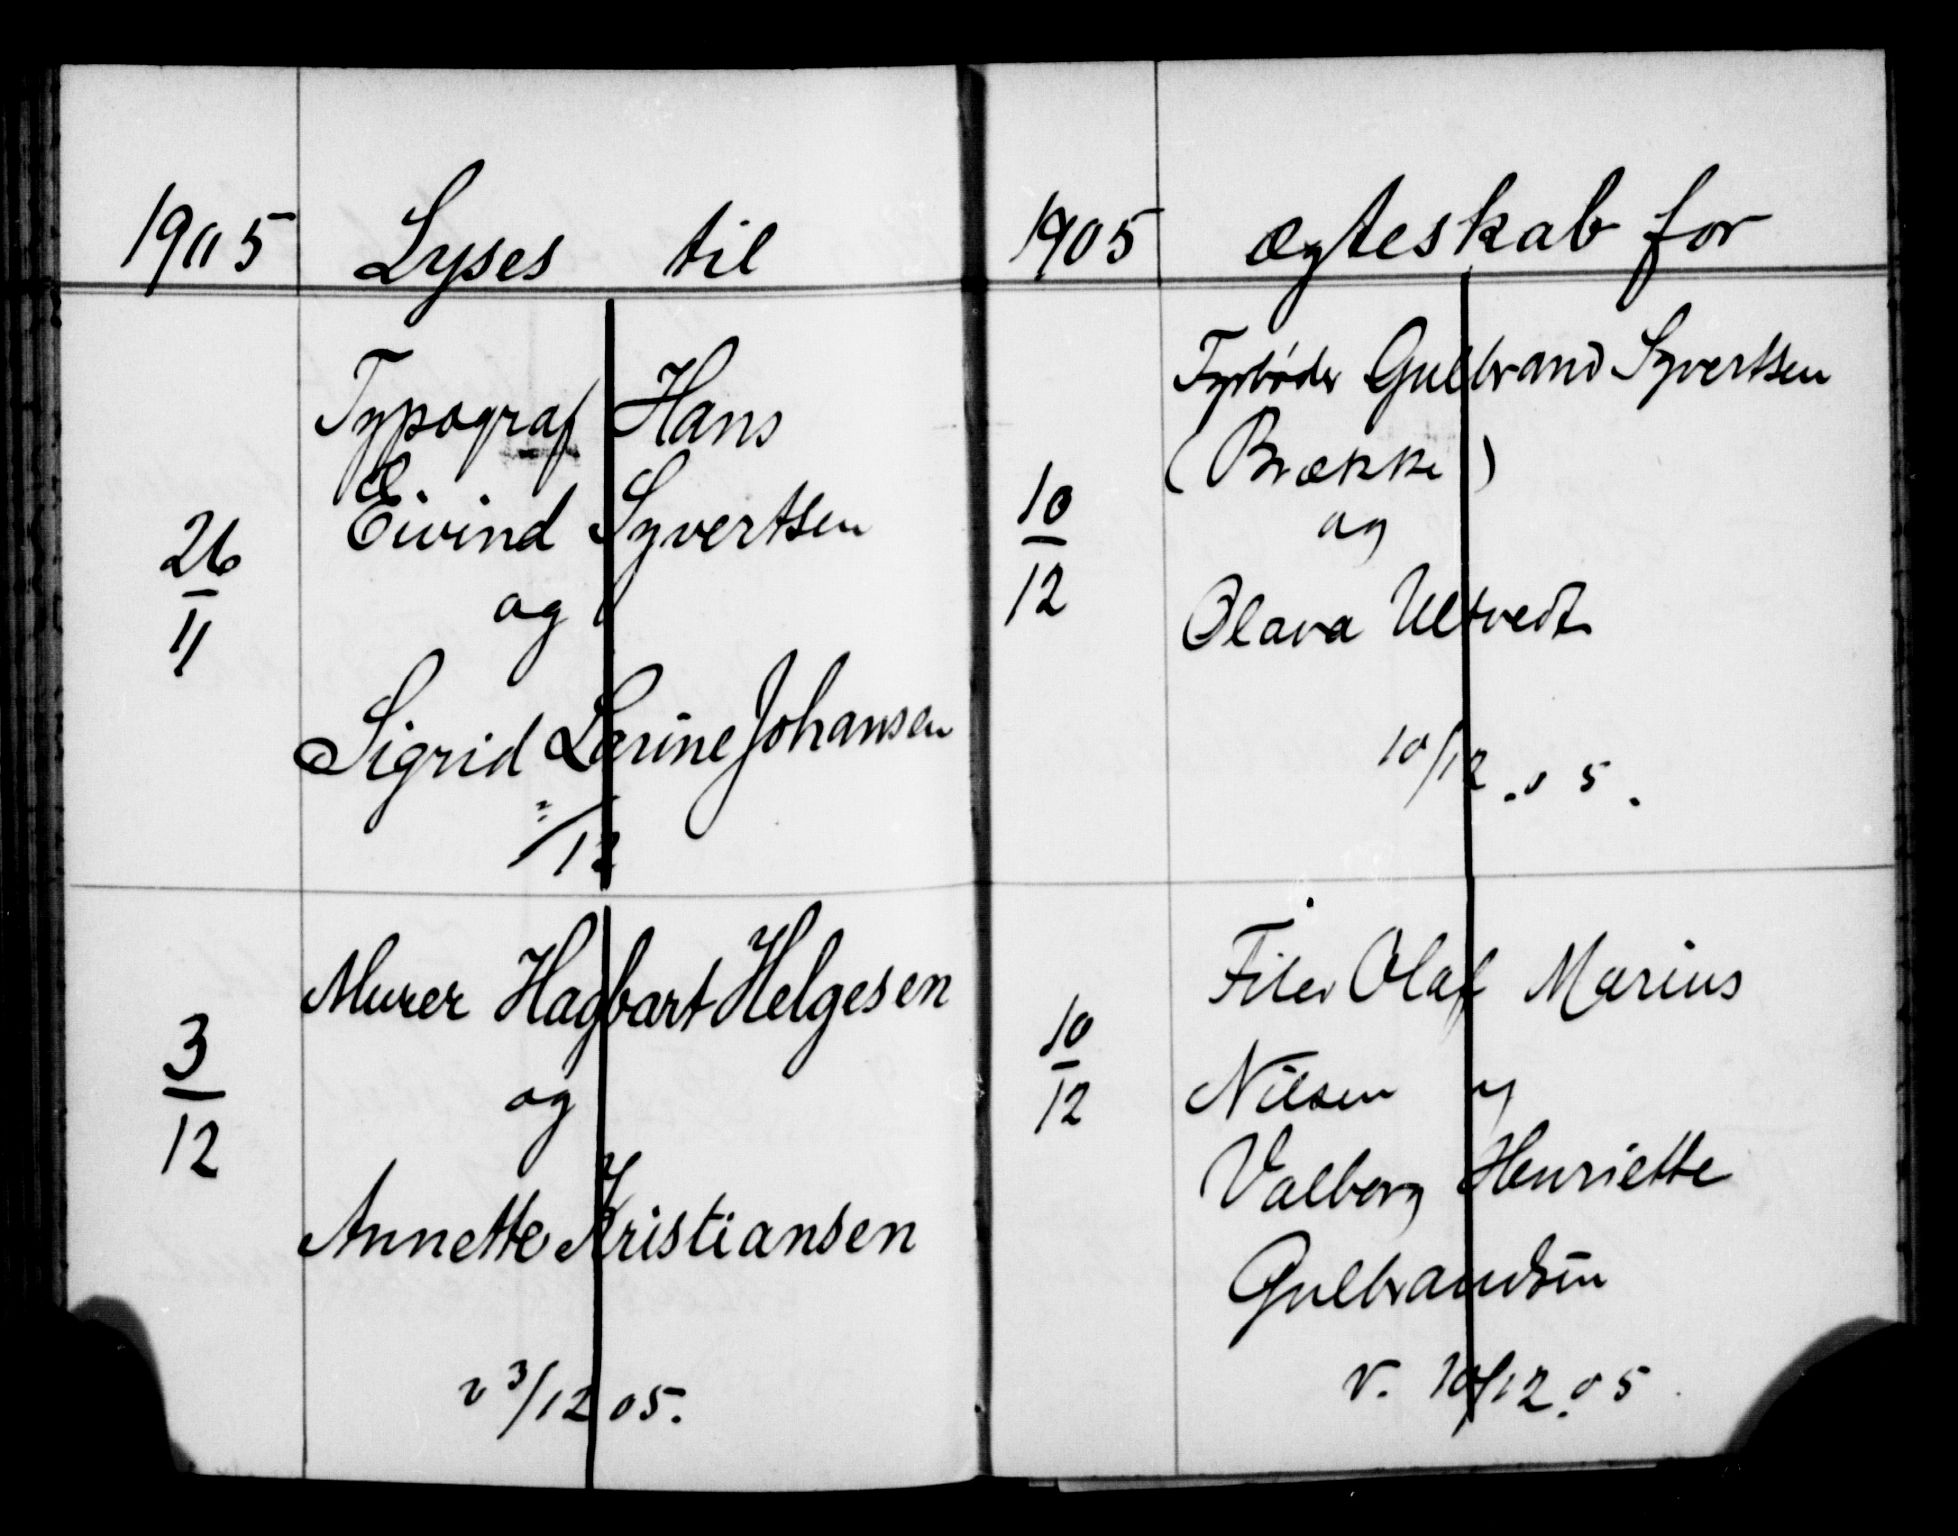 1905 Lyses til
26/11
Typograf Hans
Eivind Syvertsen
og
Sigrid Lovine Johansen
/12
3/12
Murer Hagbart Helgesen
og
Annette Kristiansen
v 3/12 05.
1905 ægteskab for
10/12
Fyrbøder Gulbrand Syvertsen
(Brække)
og
Olava Ultvedt
10/12.05.
10/12
Filer Olaf Marius
Nilsen og
Valborg Henriette
Gulbrandsen
v. 10/12.05